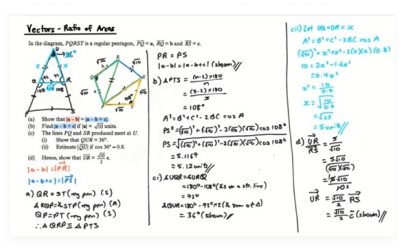 Vectors - Ratio of Areas
In the diagram, PQRST is a regular pentagon, PQ = a, RQ = b and RS = c.
(a) Show that |a - b| = |a - b + c|.
(b) Find |a - b + c| if |a| = √10 units.
(c) The lines PQ and SR produced meet at U.
(i) Show that QUR = 36°.
(ii) Estimate |QU| if cos 36° ≈ 0.8.
(d) Hence, show that
|a - b| = |PR|
|a - b + c| = |PS|
a) QR = ST (reg pen) (S)
∠RQP = ∠STP (reg pen) (A)
QP = PT (reg pen) (S)
∴ △QRP ≡ △PTS
PR = PS
|a - b| = |a - b + c| (shown)
b) ∠PTS = (n - 2)180 / n
= (5 - 2)180 / 5
= 108°
A² = B² + C² - 2BC cos A
PS² = (√10)² + (√10)² - 2(√10)(√10) cos 108°
PS = √(√10)² + (√10)² - 2(√10)(√10) cos 108°
= 5.1169
= 5.12 units
c i) ∠UQR = ∠URQ
= 180° - 108° (∠s on a str. line)
= 72°
∠QUR = 180° - 72° × 2 (∠ sum of △)
= 36° (shown)
c ii) Let UQ = UR = x
A² = B² + C² - 2BC cos A
(√10)² = x² + x² - 2(x)(x)(0.8)
10 = 2x² - 1.6x²
= 0.4x²
x² = 10 / 0.4
x = √10 / 0.4
= √25
= 5 units
d) UR / RS = 5 / √10
UR = √10 / 2 RS
= √10 / 2 c (shown)